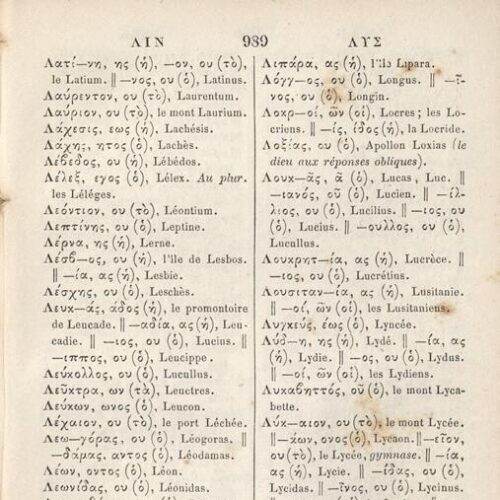 ΛΙΝ 989 ΛΥΣ
Λατί—νη, ης (ἡ), —ον, ου (τὸ),
le Latium. ‖ —νος, ου (ὁ), Latinus.
Λαύρεντον, ου (τὸ), Laurentum.
Λαύριον, ου (τὸ), le mont Laurium.
Λάχεσις, εως (ἡ), Lachésis.
Λάχης, ητος (ὁ), Lachès.
Λέβεδος, ου (ἡ), Lébédos.
Λέλεξ, εγος (ὁ), Lélex. Au plur.
les Léléges.
Λεόντιον, ου (τὸ), Léontium.
Λεπτίνης, ου (ὁ), Leptine.
Λέρνα, ης (ἡ), Lerne.
Λέσβ—ος, ου (ἡ), l'île de Lesbos.
‖ —ία, ας (ἡ), Lesbie.
Λέσχης, ου (ὁ), Leschès.
Λευκ—άς, άδος (ἡ), le promontoire
de Leucade. ‖ —αδία, ας (ἡ), Leu-
cadie. ‖ —ιος, ου (ὁ), Lucius. ‖
—ιππος, ου (ὁ), Leucippe.
Λεύκολλος, ου (ὁ), Lucullus.
Λεῦκτρα, ων (τὰ), Leuctres.
Λεύκων, ωνος (ὁ), Leucon.
Λέχαιον, ου (τὸ), le port Léchée.
Λεω—γόρας, ου (ὁ), Léogoras. ‖
—δάμας, αντος (ὁ), Léodamas.
Λέων, οντος (ὁ), Léon.
Λεωνίδας, ου (ὁ), Léonidas.
Λιπάρα, ας (ἡ), l'île Lipara.
Λόγγ—ος, ου (ὁ), Longus. ‖ —ῖ-
νος, ου (ὁ), Longin.
Λοκρ—οί, ῶν (οἱ), Locres; les Lo-
criens. ‖ —ίς, ίδος (ἡ), la Locride.
Λοξίας, ου (ὁ), Apollon Loxias (le
dieu aux réponses obliques).
Λουκ—ᾶς, ᾶ (ὁ), Lucas, Luc. ‖
—ιανός, οῦ (ὁ), Lucien. ‖ —ίλ-
λιος, ου (ὁ), Lucilius. ‖ —ιος, ου
(ὁ), Lucius. ‖ —ουλλος, ου (ὁ),
Lucullus.
Λουκρητ—ία, ας (ἡ), Lucrèce. ‖
—ιος, ου (ὁ), Lucrétius.
Λουσιταν—ία, ας (ἡ), Lusitanie.
‖ —οί, ῶν (οἱ), les Lusitaniens.
Λυγκεύς, έως (ὁ), Lyncée.
Λύδ—η, ης (ἡ), Lydé. ‖ —ία, ας
(ἡ), Lydie. ‖ —ος, ου (ὁ), Lydus.
‖ —οί, ῶν (οἱ), les Lydiens.
Λυκαβηττός, οῦ (ὁ), le mont Lyca-
bette.
Λύκ—αιον, ου (τὸ), le mont Lycée.
‖ —άων, ονος (ὁ), Lycaon. ‖ —εῖον,
ου (τὸ), le Lycée, gymnase. ‖ —ία,
ας (ἡ), Lycie. ‖ —ίδας, ου (ὁ),
Lycidas. ‖ —ῖνος, ου (ὁ), Lycinus.